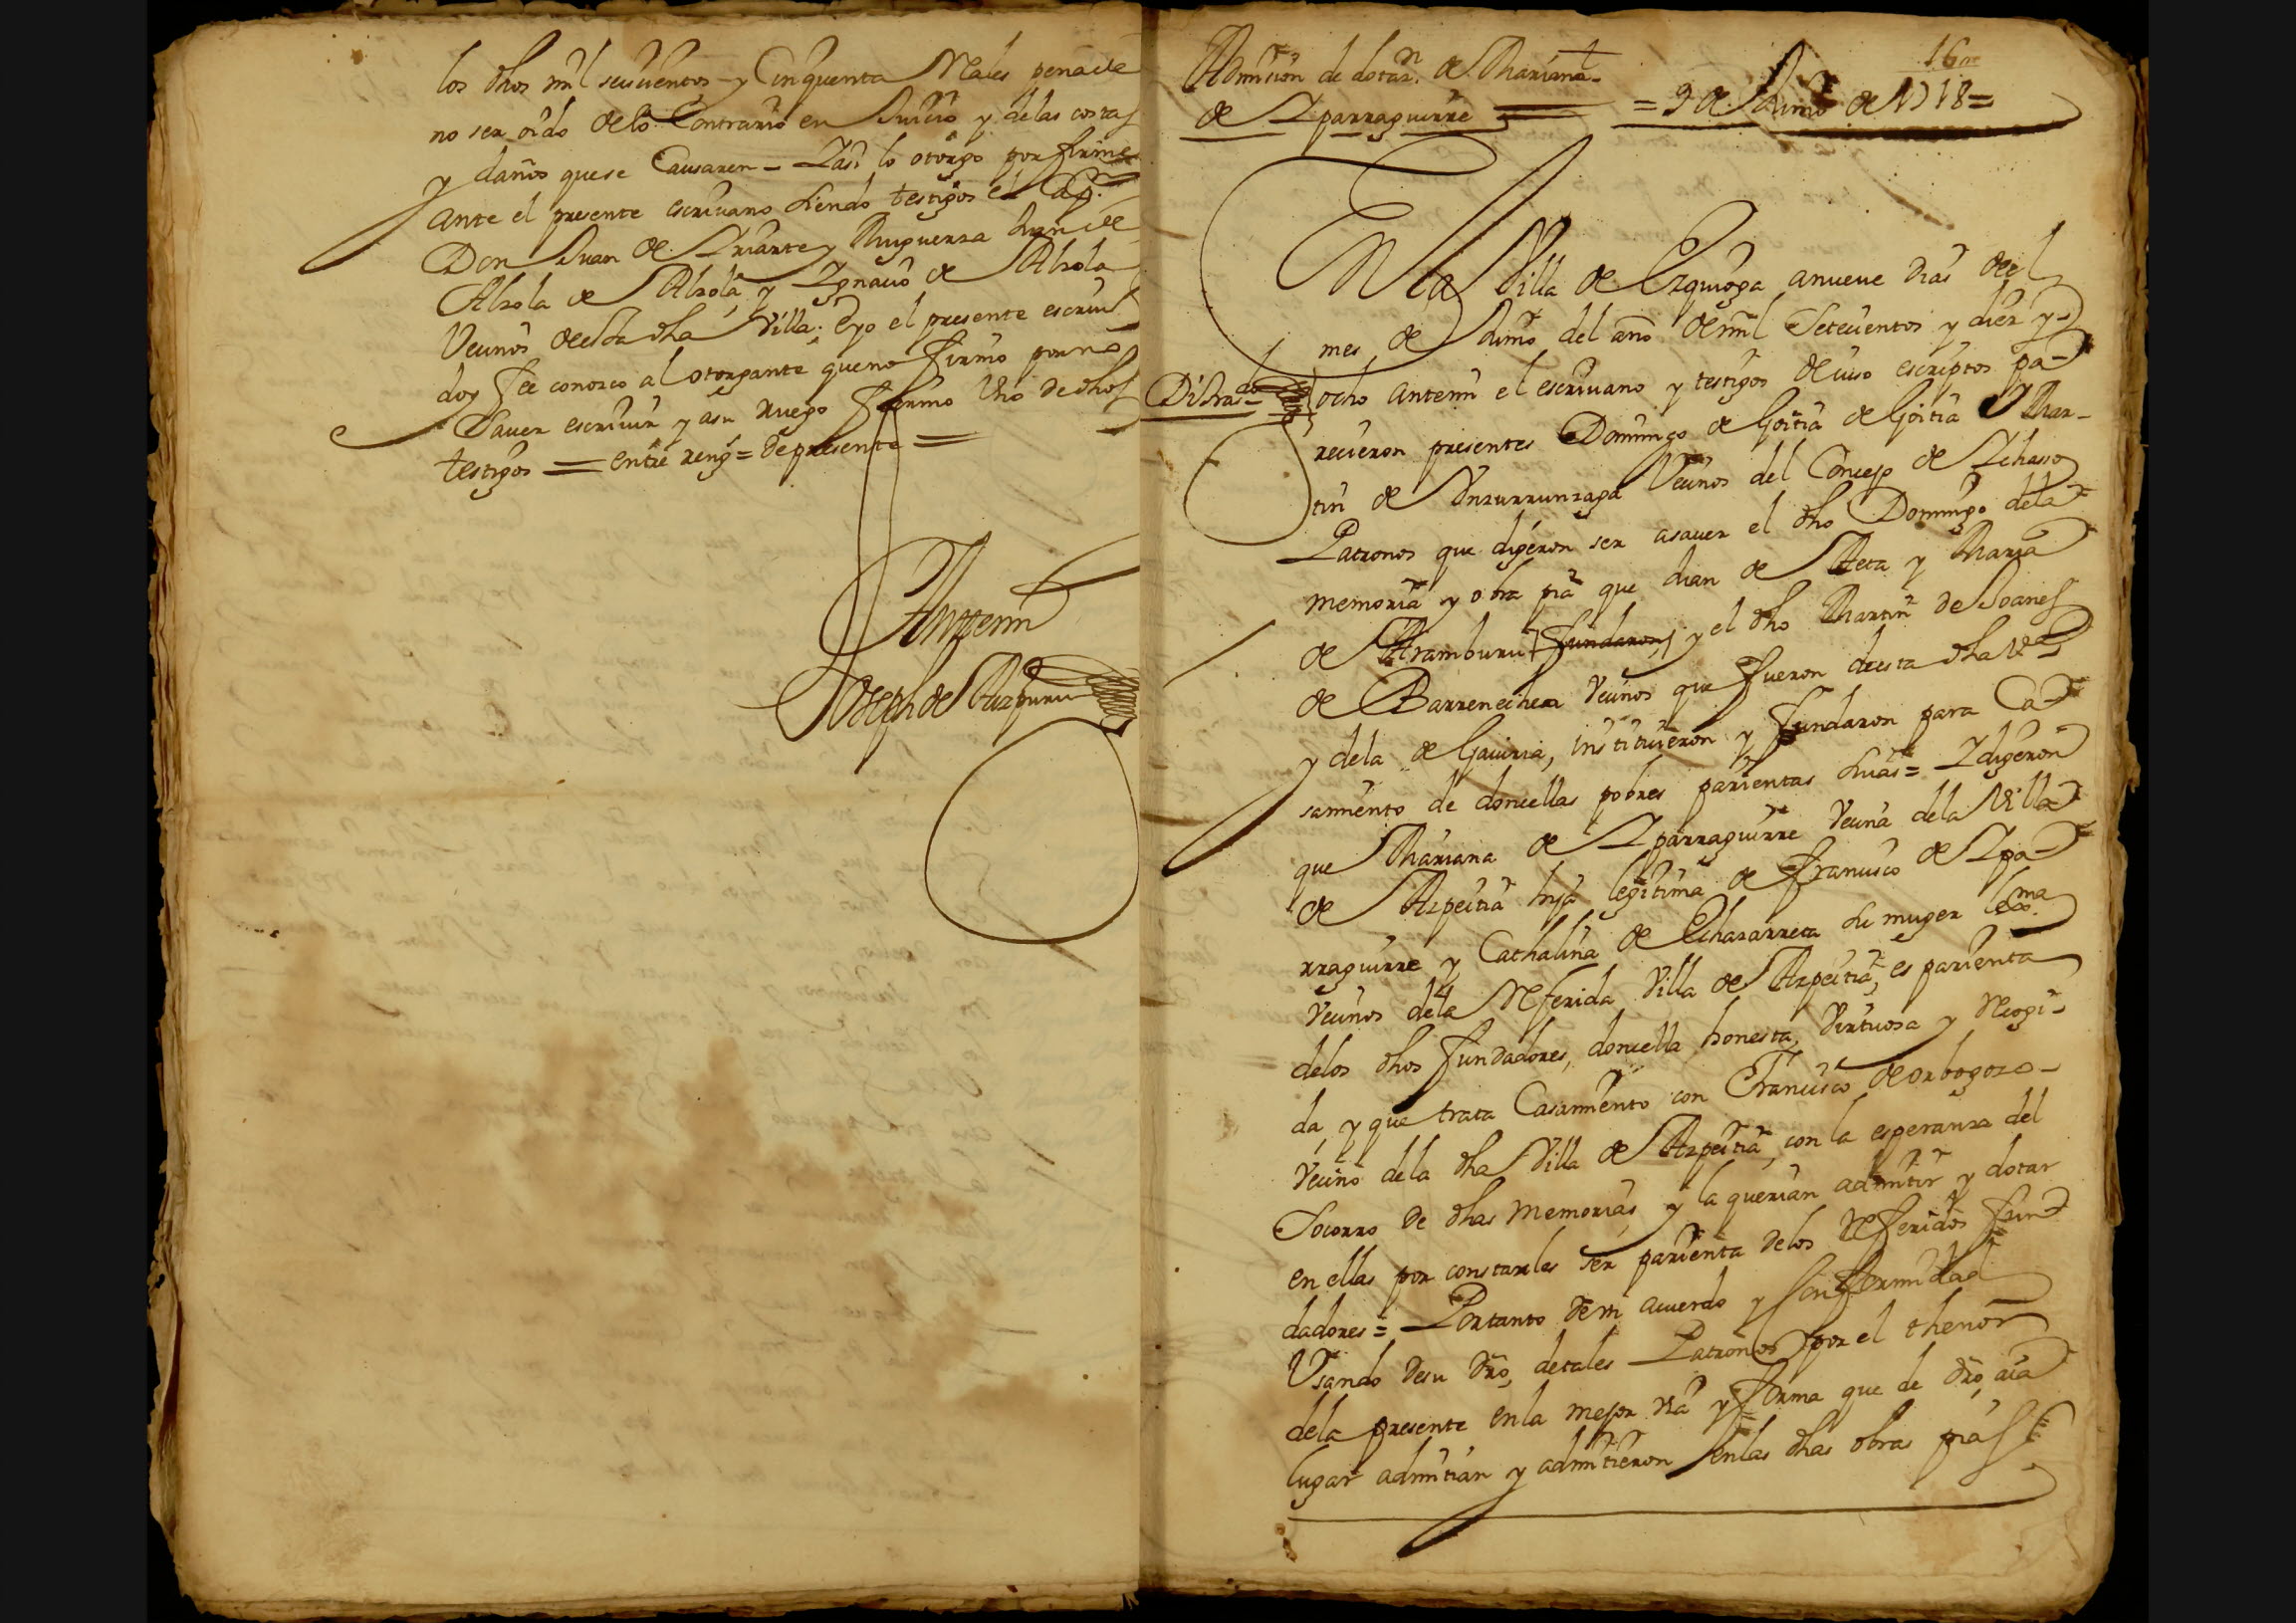 los dhos mil seiscientos y Cinquenta Reales pena de
no ser oido de lo Contrario en Juicio y delas costas
y daños quese Causaren = Y asi lo otorgo por firme
ante el presente escrivano siendo testigos el Cap.ⁿ
Don Juan de Yriarte y Juan de
Alzola de Alzola, y Ygnacio de Alzola
Vecinos de esta dha Villa; e yo el presente escriv.º
doy fee conozco al otorgante que no firmo por no
saver escrivir y asu ruego firmo Uno de dhos
testigos = entre reng.s = de presente =
Antemi
Joseph de Aizpuru
16
Admision de dotaz.ⁿ de Mariana
de Yparraguirre = 9 de Junio de 1718 =
En la Villa de Ezquioga anueve dias del
mes de Junio del año de mil Setecientos y diez y
ocho antemi el escrivano y testigos de iuso escriptos pa-
recieron presentes Domingo de Goitia de Goitia y Mar-
tin de Unzurrunzaga Vecinos del Concejo de Ychasso
Patronos que digeron ser asaver el dho Domingo dela
memoria y obra pia que Juan de Aeta y Maria
de Aramburu fundaron, y el dho Martin de Joanes
de Barrenechea vecinos que fueron deesta dha V.ª
y dela de Gaviria, instituieron y fundaron para Ca-
samiento de doncellas pobres parientas suias = Y digeron
que Mariana de Yparraguirre Vecina dela Villa
de Azpeitia hija legitima de Francisco de Ypa-
rraguirre y Cathalina de Echazarreta su muger lexma
Vecinos dela Referida Villa de Azpeitia, es parienta
delos dhos fundadores, doncella honesta, Virtuosa y Recogi-
da, y que trata Casamiento con Francisco de orbegozo -
Vecino dela dha Villa de Azpeitia, con la esperanza del
Socorro de dhas memorias, y la querian admitir y dotar
en ellas por constarles ser parienta delos Referidos fun-
dadores = Por tanto de un acuerdo y conformidad
Usando desu dro, de tales Patronos por el thenor
dela presente en la mejor via y forma que de dro, aia
lugar admitian y admitieron en las dhas obras pias